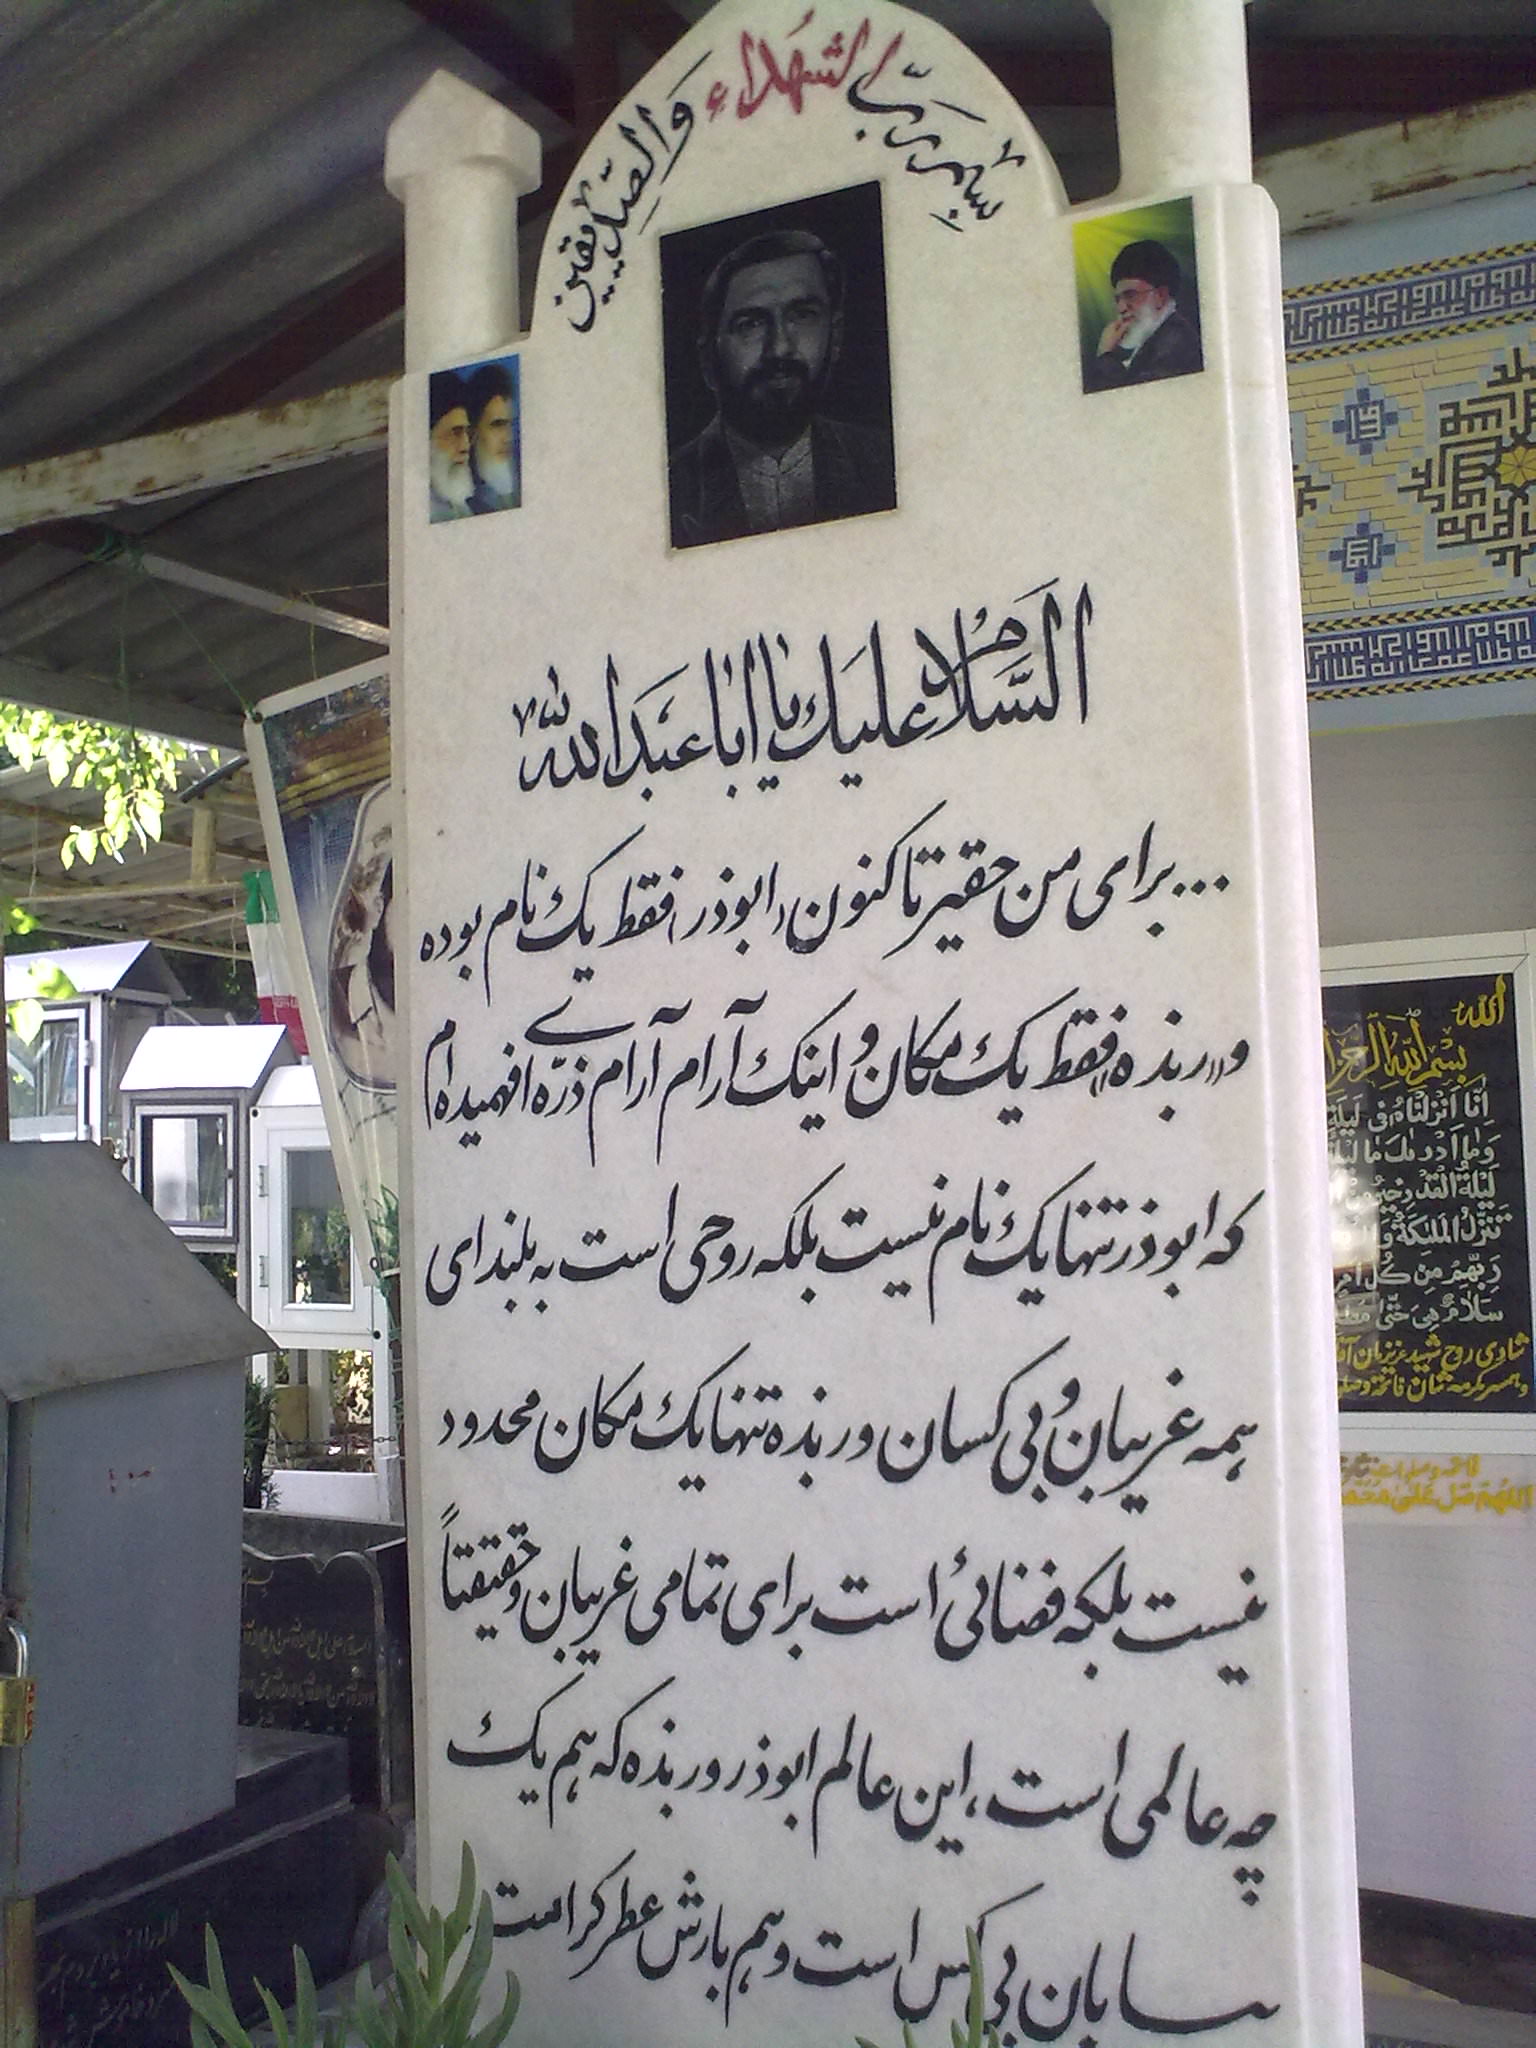 بِسْمِ رَبِّ الشُّهَداءِ وَالصِّدّیقین
اَلسَّلامُ عَلیَکَ یا اَبا عَبدَاللهِ
...برای من حقیر تاکنون «ابوذر» فقط یک نام بوده
و «ربذه» فقط یک مکان و اینک آرام آرام ذرّه ای فهمیده ام
که ابوذر تنها یک نام نیست بلکه روحی است به بلندای
همه غریبان و بی کسان و ربذه تنها یک مکان محدود
نیست بلکه فضائی است برای تمامی غریبان و حقیقتاً
چه عالمی است، این عالم ابوذر و ربذه که هم یک
بی کس است و هم بارش عطر کر است
الله
بسم الله الرحمن
اِنّا اَنْزَلْناهُ فی لَیْلَةِ
وَما اَدْریٰکَ ما لَیْلَةُ
لَیْلَةُ الْقَدْرِ خَیْرٌ مِنْ
تَنَزَّلُ الْمَلٰئِکَةُ وَ
رَبِّهِمْ مِنْ کُلِّ اَمْرٍ
سَلامٌ هِیَ حَتّیٰ مَطْلَعِ
شادی روح شهید عزیزمان
و همسر مکرمه شان فاتحة و صلوات
فاتحه و صلوات
اللهم صل علی محمد